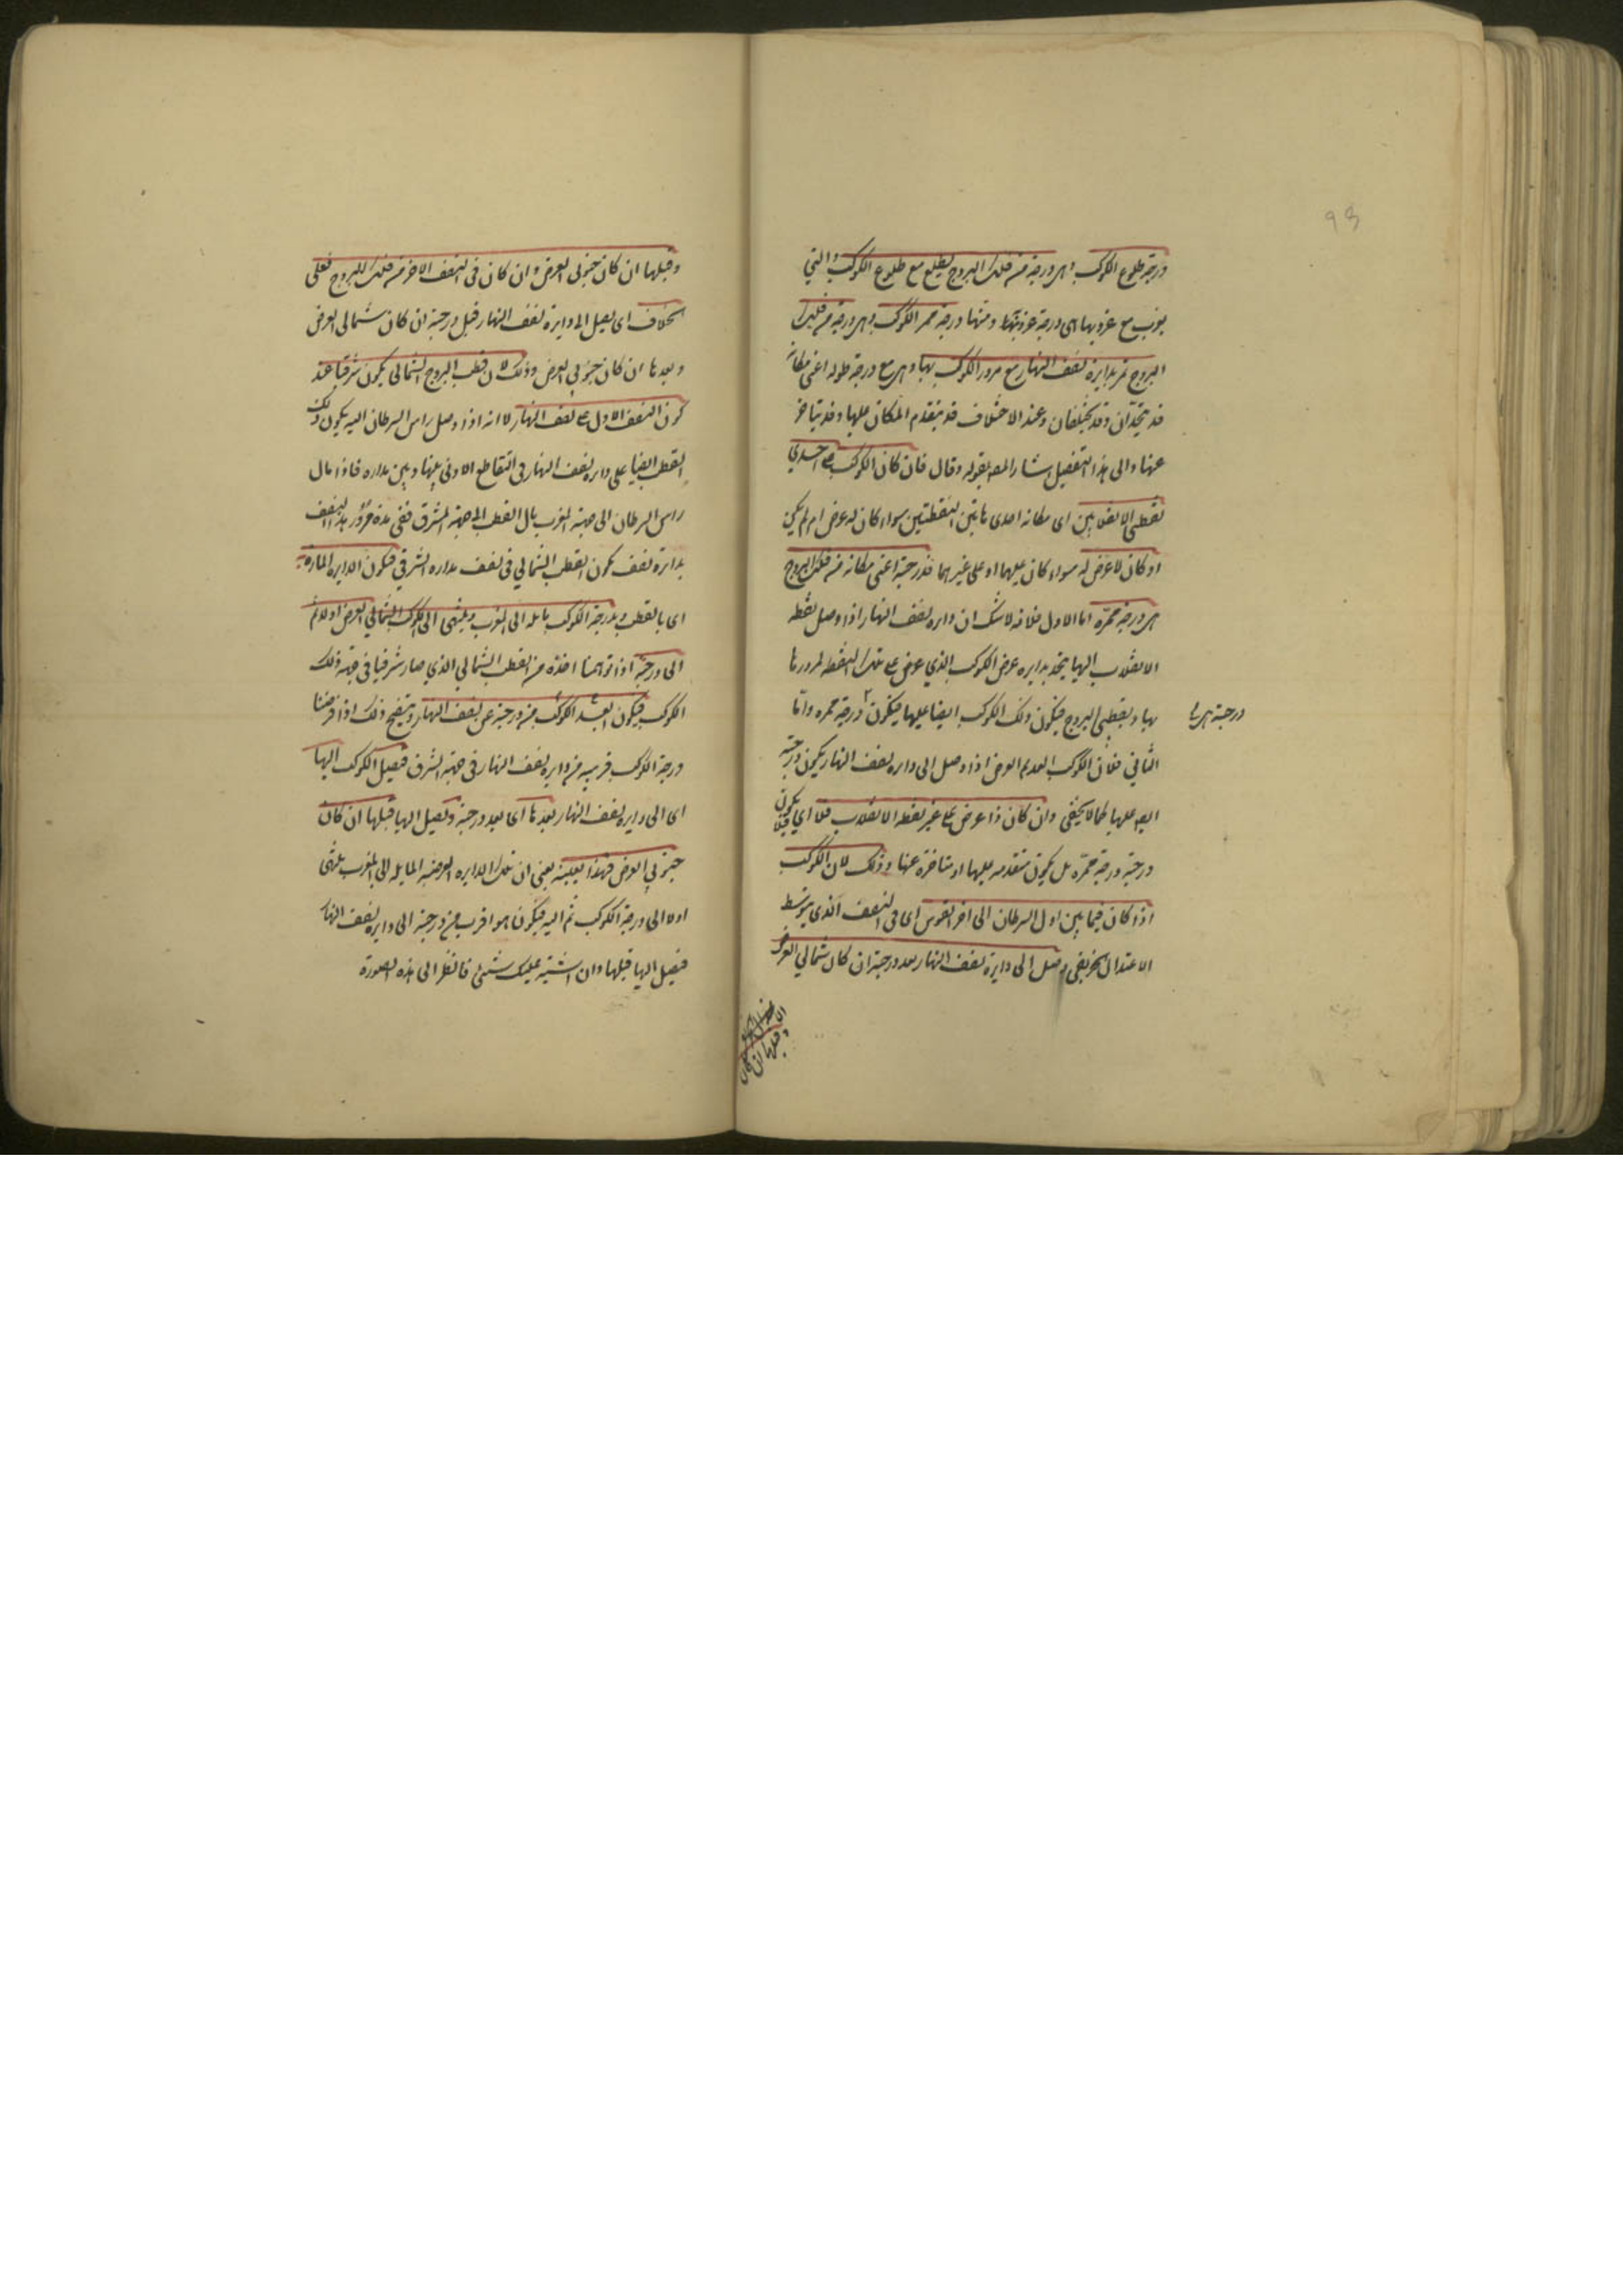 93
درجة طلوع الكوكب وهى درجة من فلك البروج يطلع مع طلوع الكوكب والتي
يغرب مع غروبها هى درجة غروبه فقط ومنها درجة ممر الكوكب وهى درجة من فلك
البروج تمر بدايرة نصف النهار مع مرور الكوكب بها وهى مع درجة طوله اعنى مكانه
قد يتحدان وقد يختلفان وعند الاختلاف قد يتقدم المكان عليها وقد يتاخر
عنها والى هذا التفصيل اشار المص بقوله وقال فان كان الكوكب على احدى
نقطتى الانقلابين اى مكانه احدى هاتين النقطتين سواء كان له عرض ام لم يكن
او كان لا عرض له سواء كان عليهما او على غيرهما فدرجته اعنى مكانه من فلك البروج
هى درجة ممره اما الاول فلانه لا شك ان دايره نصف النهار اذا وصل نقطة
الانقلاب اليها يتحد بدايره عرض الكوكب الذي عرض على تلك النقطه لمرورها
بها وبقطبى البروج فيكون ذلك الكوكب ايضا عليها فيكون درجة ممره واما
درجته هى
الثاني فلان الكوكب العديم العرض اذا وصل الى دايره نصف النهار يكون درجته
ايض عليها كما لا يخفى وان كان ذا عرض على غير نقطة الانقلاب فلا اى فلا يكون
درجته درجة ممره بل يكون متقدمه عليها او متاخرة عنها وذلك لان الكوكب
اذا كان فيما بين اول السرطان الى اخر القوس اى فى النصف الذى يتوسطه
الاعتدال الخريفى وصل الى دايرة نصف النهار بعد درجته ان كان شمالي العرض
وقبلها ان كان
وقبلها ان كان جنوبى العرض وان كان فى النصف الاخر من فلك البروج فعلى
الخلاف اى يصل الى دايرة نصف النهار قبل درجته ان كان شمالى العرض
وبعدها ان كان جنوبى العرض وذلك لان قطب البروج الشمالى يكون شرقيا عند
كون النصف الاول على نصف النهار لانه اذا وصل راس السرطان اليه يكون ذلك
القطب ايضا على دايره نصف النهار فى التقاطع الادنى بينها وبين مداره فاذا مال
راس السرطان الى جهة المغرب مال القطب الى جهة المشرق ففى مدة مرور هذا النصف
بدايرة نصف يكون القطب الشمالي فى نصف مداره الشرقي فيكون الدايره المارة به
اى بالقطب وبدرجة الكوكب مايله الى المغرب وينتهى الى الكوكب الشمالي العرض اولا ثم
الى درجته اذا توهمنا اخذه من القطب الشمالي الذي صار شرقيا فى جهة ذلك
الكوكب فيكون ابعد الكوكب من درجته عن نصف النهار ويتضح ذلك اذا فرضنا
درجة الكوكب قريبه من دايره نصف النهار فى جهة الشرق فيصل الكوكب اليها
اى الى دايره نصف النهار بعدها اى بعد درجته ويصل اليها قبلها ان كان
جنوبى العرض فهذا بعينه يعنى ان تلك الدايره العرضيه المايله الى المغرب ينتهى
اولا الى درجة الكوكب ثم اليه فيكون هو اقرب من درجته الى دايره نصف النهار
فيصل اليها قبلها وان اشتبه عليك شئ فانظر الى هذه الصورة